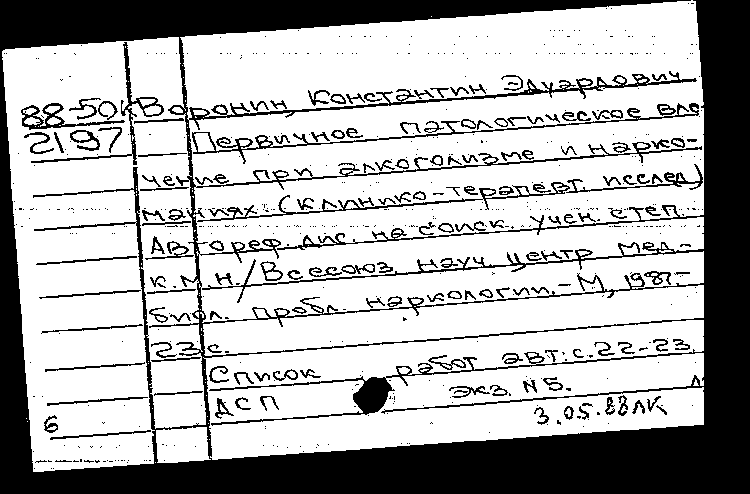 88-50к Воронин, Константин Эдуардович
2197 Первичное патологическое вле-
чение при алкоголизме и нарко-
маниях. (Клинико-терапевт. исслед.)
Автореф. дис. на соиск. учен. степ.
к.м.н./Всесоюз. науч. центр мед.-
биол. пробл. наркологии.-М, 1987.-
23 с.
Список работ авт.: с. 22-23.
ДСП экз. N5.
6 3.05.88 ЛК